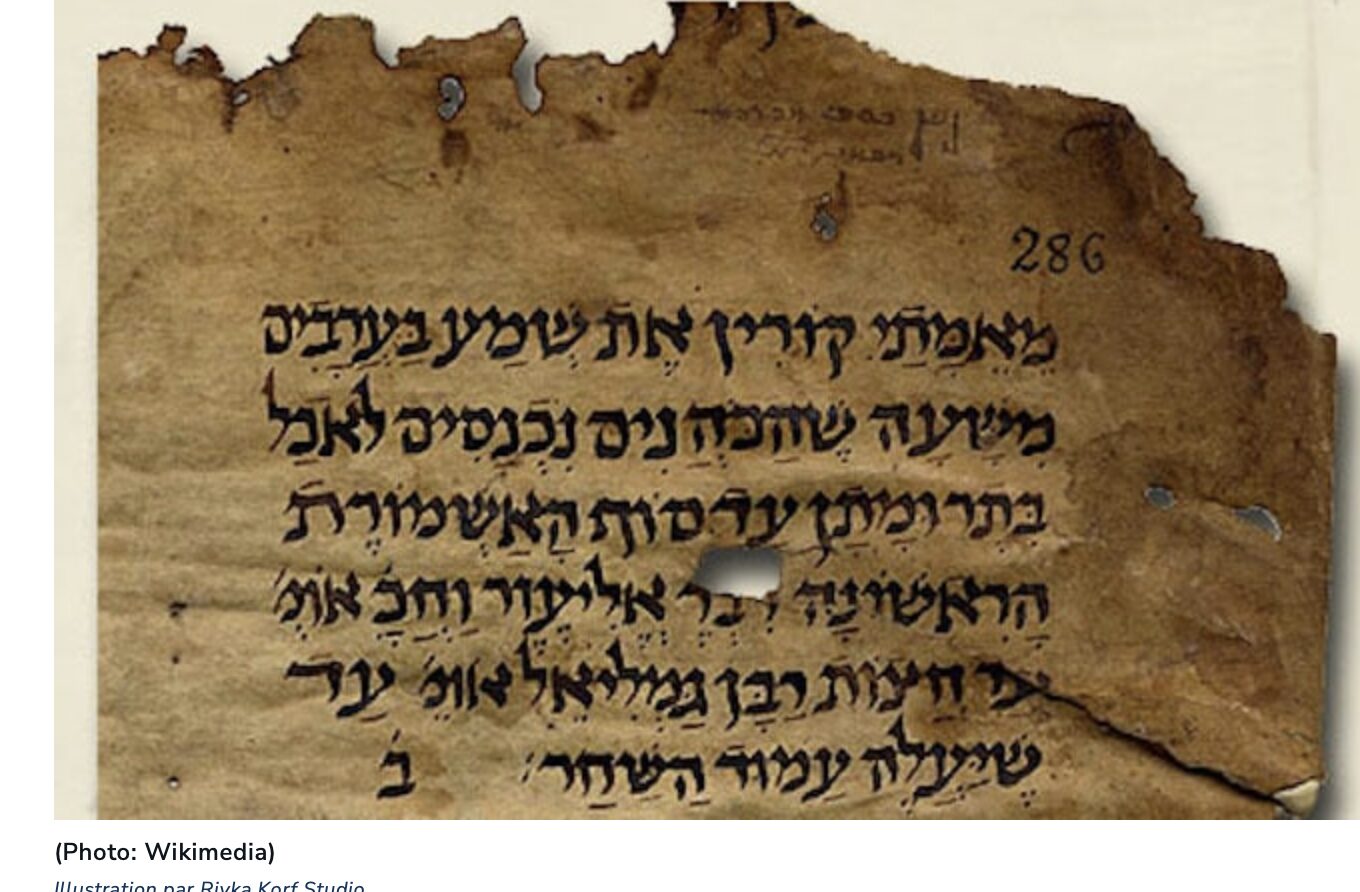 286
מאמתי קורין את שמע בערבים
משעה שהכה נים נכנסים לאכל
בתרומתן עד סוף האשמורת
הראשונה דבר אליעזר וחכ׳ אומ׳
עד חצות רבן גמליאל אומ׳ עד
שיעלה עמוד השחר׃ ב
(Photo: Wikimedia)
Illustration par Rivka Korf Studio